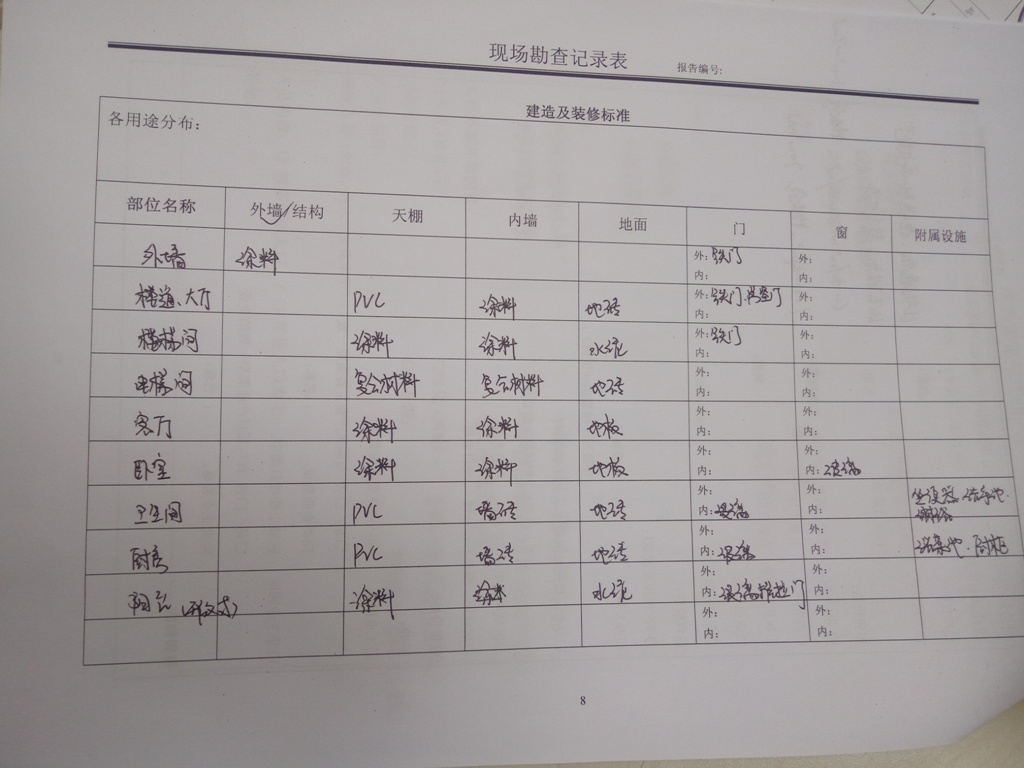 现场勘查记录表 报告编号:
建造及装修标准
各用途分布:
部位名称 外墙/结构 天棚 内墙 地面 门 窗 附属设施
外墙 涂料 外:铁门 外:
内: 内:
楼道、大厅 PVC 涂料 地砖 外:铁门. 外:
内: 内:
楼梯间 涂料 涂料 水泥 外:铁门 外:
内: 内:
电梯间 复合材料 复合材料 地砖 外: 外:
内: 内:
客厅 涂料 涂料 地板 外: 外:
内: 内:
卧室 涂料 涂料 地板 外: 外:
内: 内:玻璃
卫生间 PVC 墙砖 地砖 外: 外: 坐便器.洗手池.
内:玻璃 内:
厨房 PVC 墙砖 地砖 外: 外: 洗菜池.厨柜
内:玻璃 内:
阳台 涂料 涂料 水泥 外: 外:
内:玻璃推拉门 内:
外: 外:
内: 内:
8